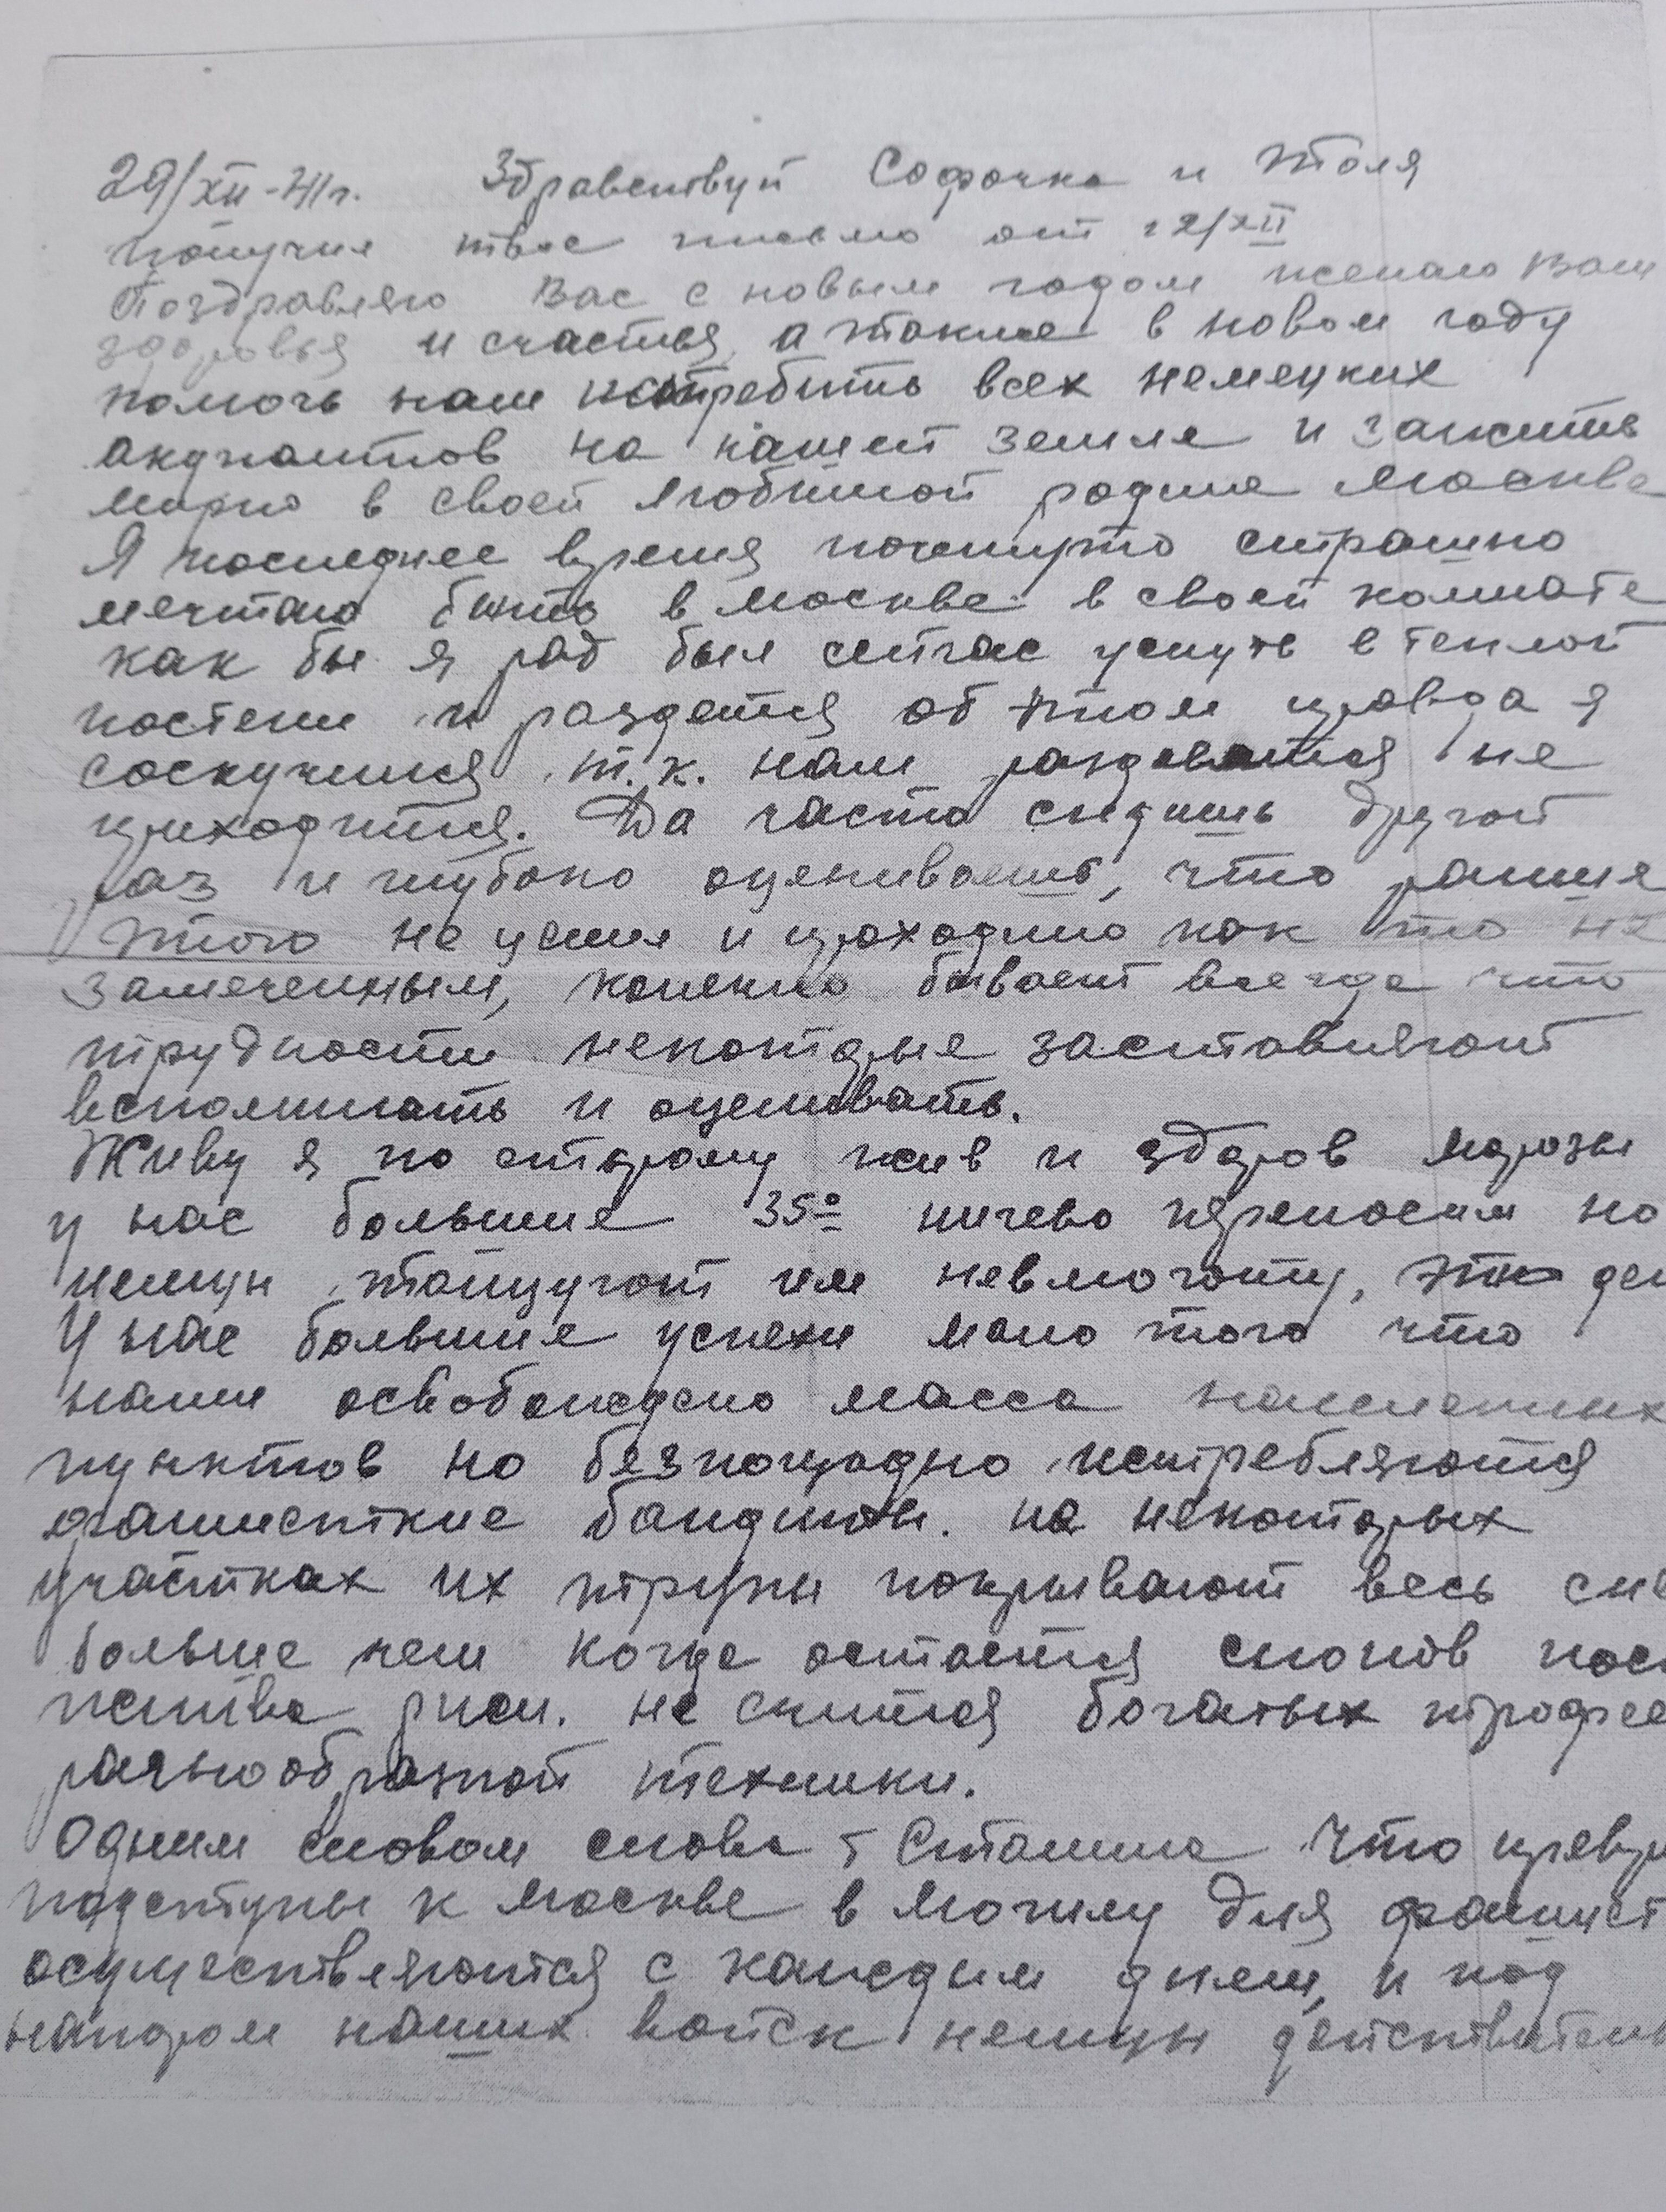 29/XII-41г. Здравствуй Софочка и Толя
получил твое письмо от 12/XII
Поздравляю Вас с новым годом желаю Вам
здоровья и счастья, а также в новом году
помочь нам истребить всех немецких
окупантов на нашей земле и зажить
мирно в своей любимой родине Москве
Я последнее время почемуто страшно
мечтаю быть в Москве в своей комнате
как бы я рад был сейчас уснуть в теплой
постели и раздется об этом правда я
соскучился, т.к. нам раздеватся не
приходится. Да часто сидишь другой
раз и глубоко оцениваешь, что раньше
этого не ценил и проходило как то не
замеченным, конечно бывает всегда что
трудности некоторые заставляют
вспоминать и оценивать.
Живу я по старому жив и здоров морозы
у нас большие 35° ничево переносим но
немцы танцуют им невмоготу, это
У нас большие успехи мало того что
нами освобождено масса населенных
пунктов но безпощадно истребляются
фашисткие бандиты. на некоторых
участках их трупы покрывают весь
больше чем когда остается снопов
жнитва ржи. не считая богатых
разнообразной техники.
Одним словом слова т Сталина что
подступы к Москве в могилу для
осуществляются с каждым днем, и под
напором наших войск немцы